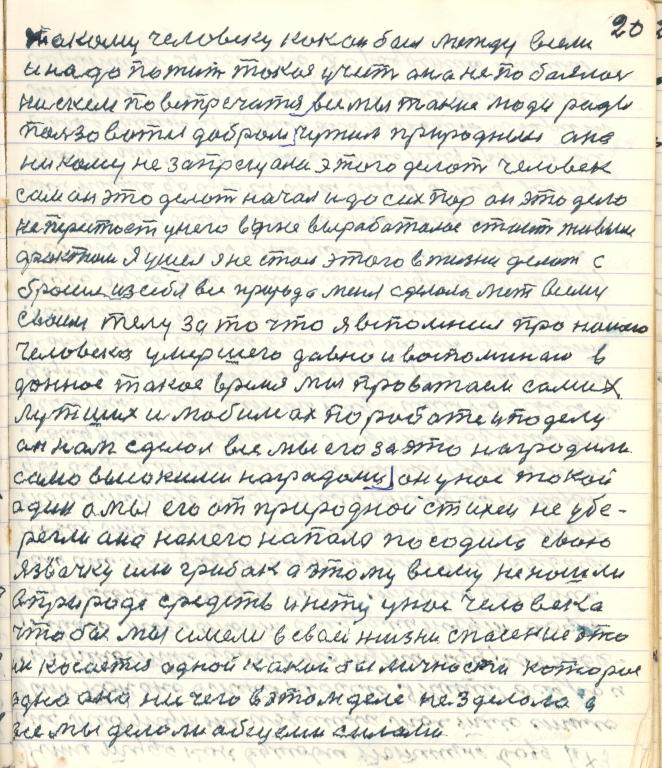 20
такому человеку как он был между всеми
и надо пожит такая учит она не побаялас
ни скем повстречатся, все мы такие люди рады
ползоватся добром чужим природным она
никому не запрещала этого делат человек
сам он это делат начал и до сих пор он это дело
у него выработалос стоит живым
фактом я ушел я не стал этого в жизни делат с
бросил из себя все природа меня сделала мет всему
своим телу за то что я вспомнил про нашего
человека умершего давно и воспоминаю в
данное такое время мы проважаем самих
лутших и любимых по работе и по делу
он нам сделал все мы его за это наградили
само высокими наградами, он у нас такой
один а мы его от природной стихеи не убе-
регли она на него напала посодила свою
язвачку или грибок а этому всему не ношли
в природе средств и нету у нас человека
что бы мы имели в своей жизни спасение это
не касается одной какой бы личности которое
одна она ничего в этом деле не зделала а
все мы делали общеми силами